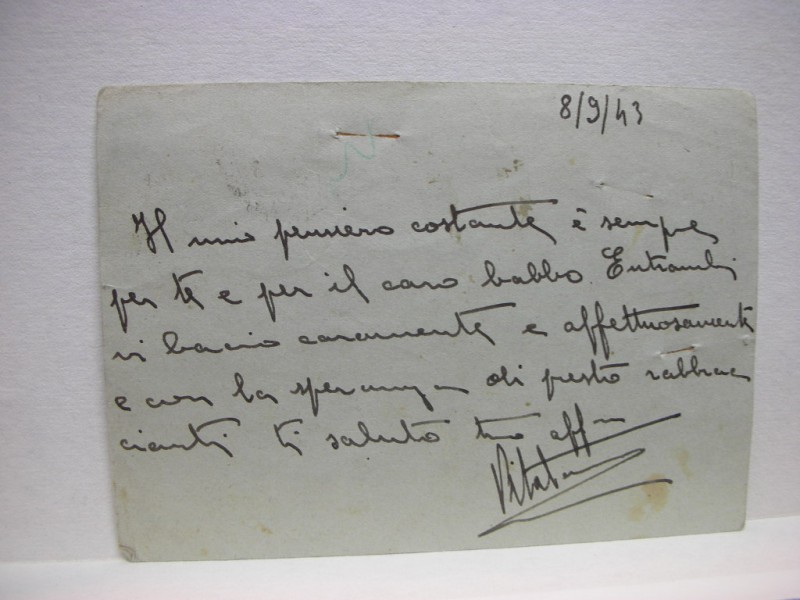 8/9/43
Il mio pensiero costante è sempre
per te e per il caro babbo. Entrambi
vi bacio caramente e affettuosamente
e con la speranza di presto riabbrac
ciarti ti saluto tuo aff